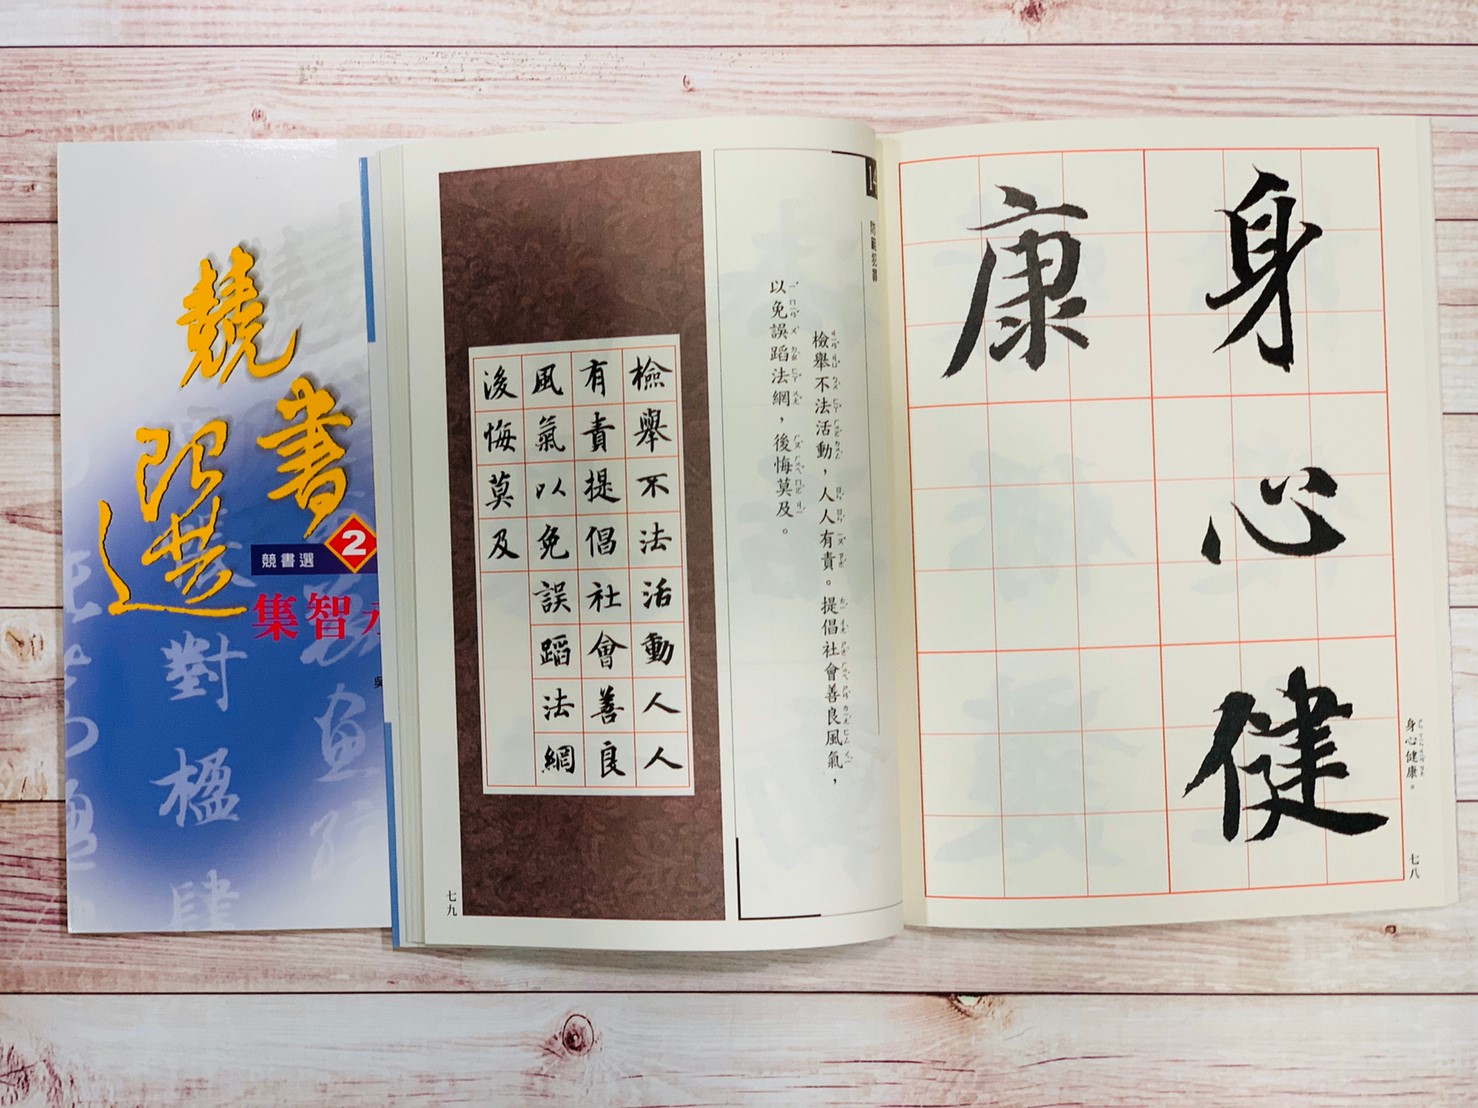 身心健
康
身心健康。
七八
檢舉不法活動，人人有責。提倡社會善良風氣，
以免誤蹈法網，後悔莫及。
檢舉不法活動人人
有責提倡社會善良
風氣以免誤蹈法網
後悔莫及
七九
競書
選
競書選
2
集智永
對楹肆